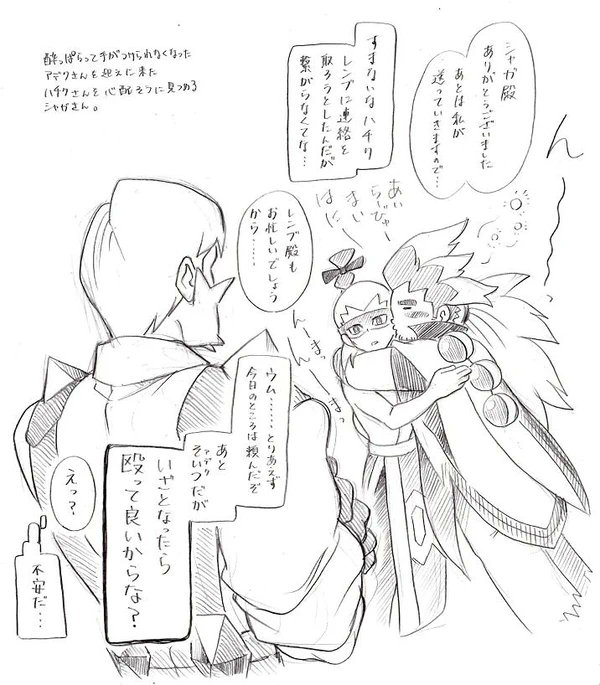 酔っぱらって手がつけられなくなった
アデクさんを迎えに来た
ハチクさんを心配そうに見つめる
シャガさん。
シャガ殿
ありがとうございました
あとは私が
送っていきますので…
すまないなハチク
レンブに連絡を
取ろうとしたんだが
繋がらなくてな…
ん
あい
らびゅー
まい
はに
レンブ殿も
お忙しいでしょう
から……
んーまっ
ウム……とりあえず
今日のところは頼んだぞ
あと
そいつだが
アデク
いざとなったら
殴って良いからな?
えっ?
不安だ…